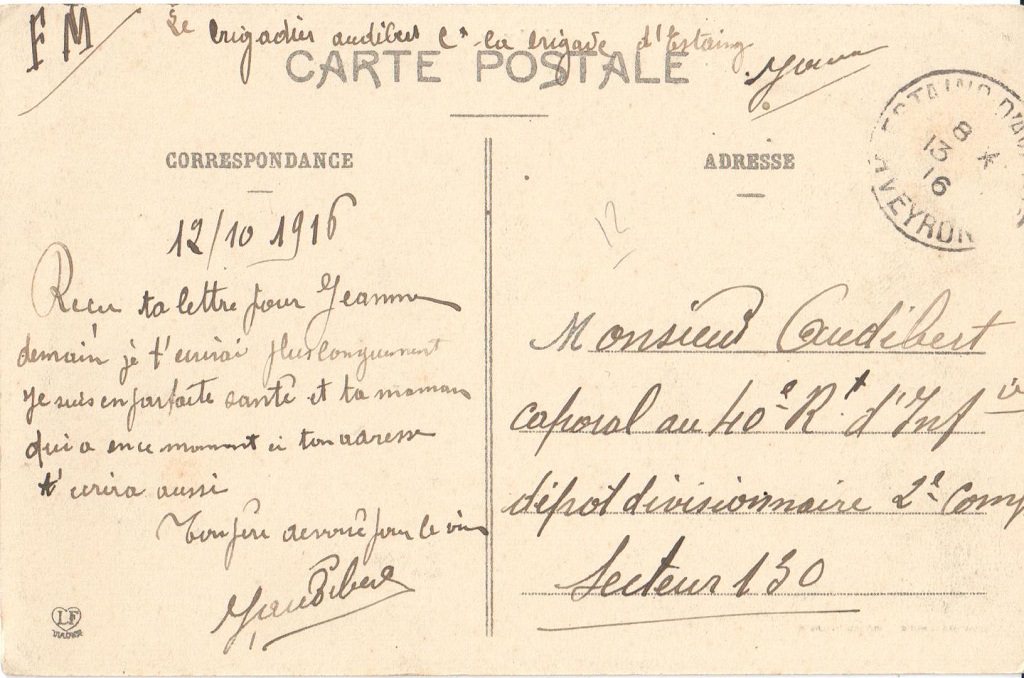 FM
Le brigadier audibert Ct la brigade d'Estaing
CARTE POSTALE
CORRESPONDANCE
12/10 1916
Recu ta lettre pour Jeanne
demain je t'ecrirai plus longuement
Je suis en parfaite santé et ta maman
qui a en ce moment ton adresse
t'ecrira aussi
Ton père devoué pour la vie
Audibert
LF
ADRESSE
12
ESTAING D'A
8 *
13
16
AVEYRON
Monsieur Audibert
caporal au 40e Rt d'Infie
dépot divisionnaire 2e Comp
Secteur 130